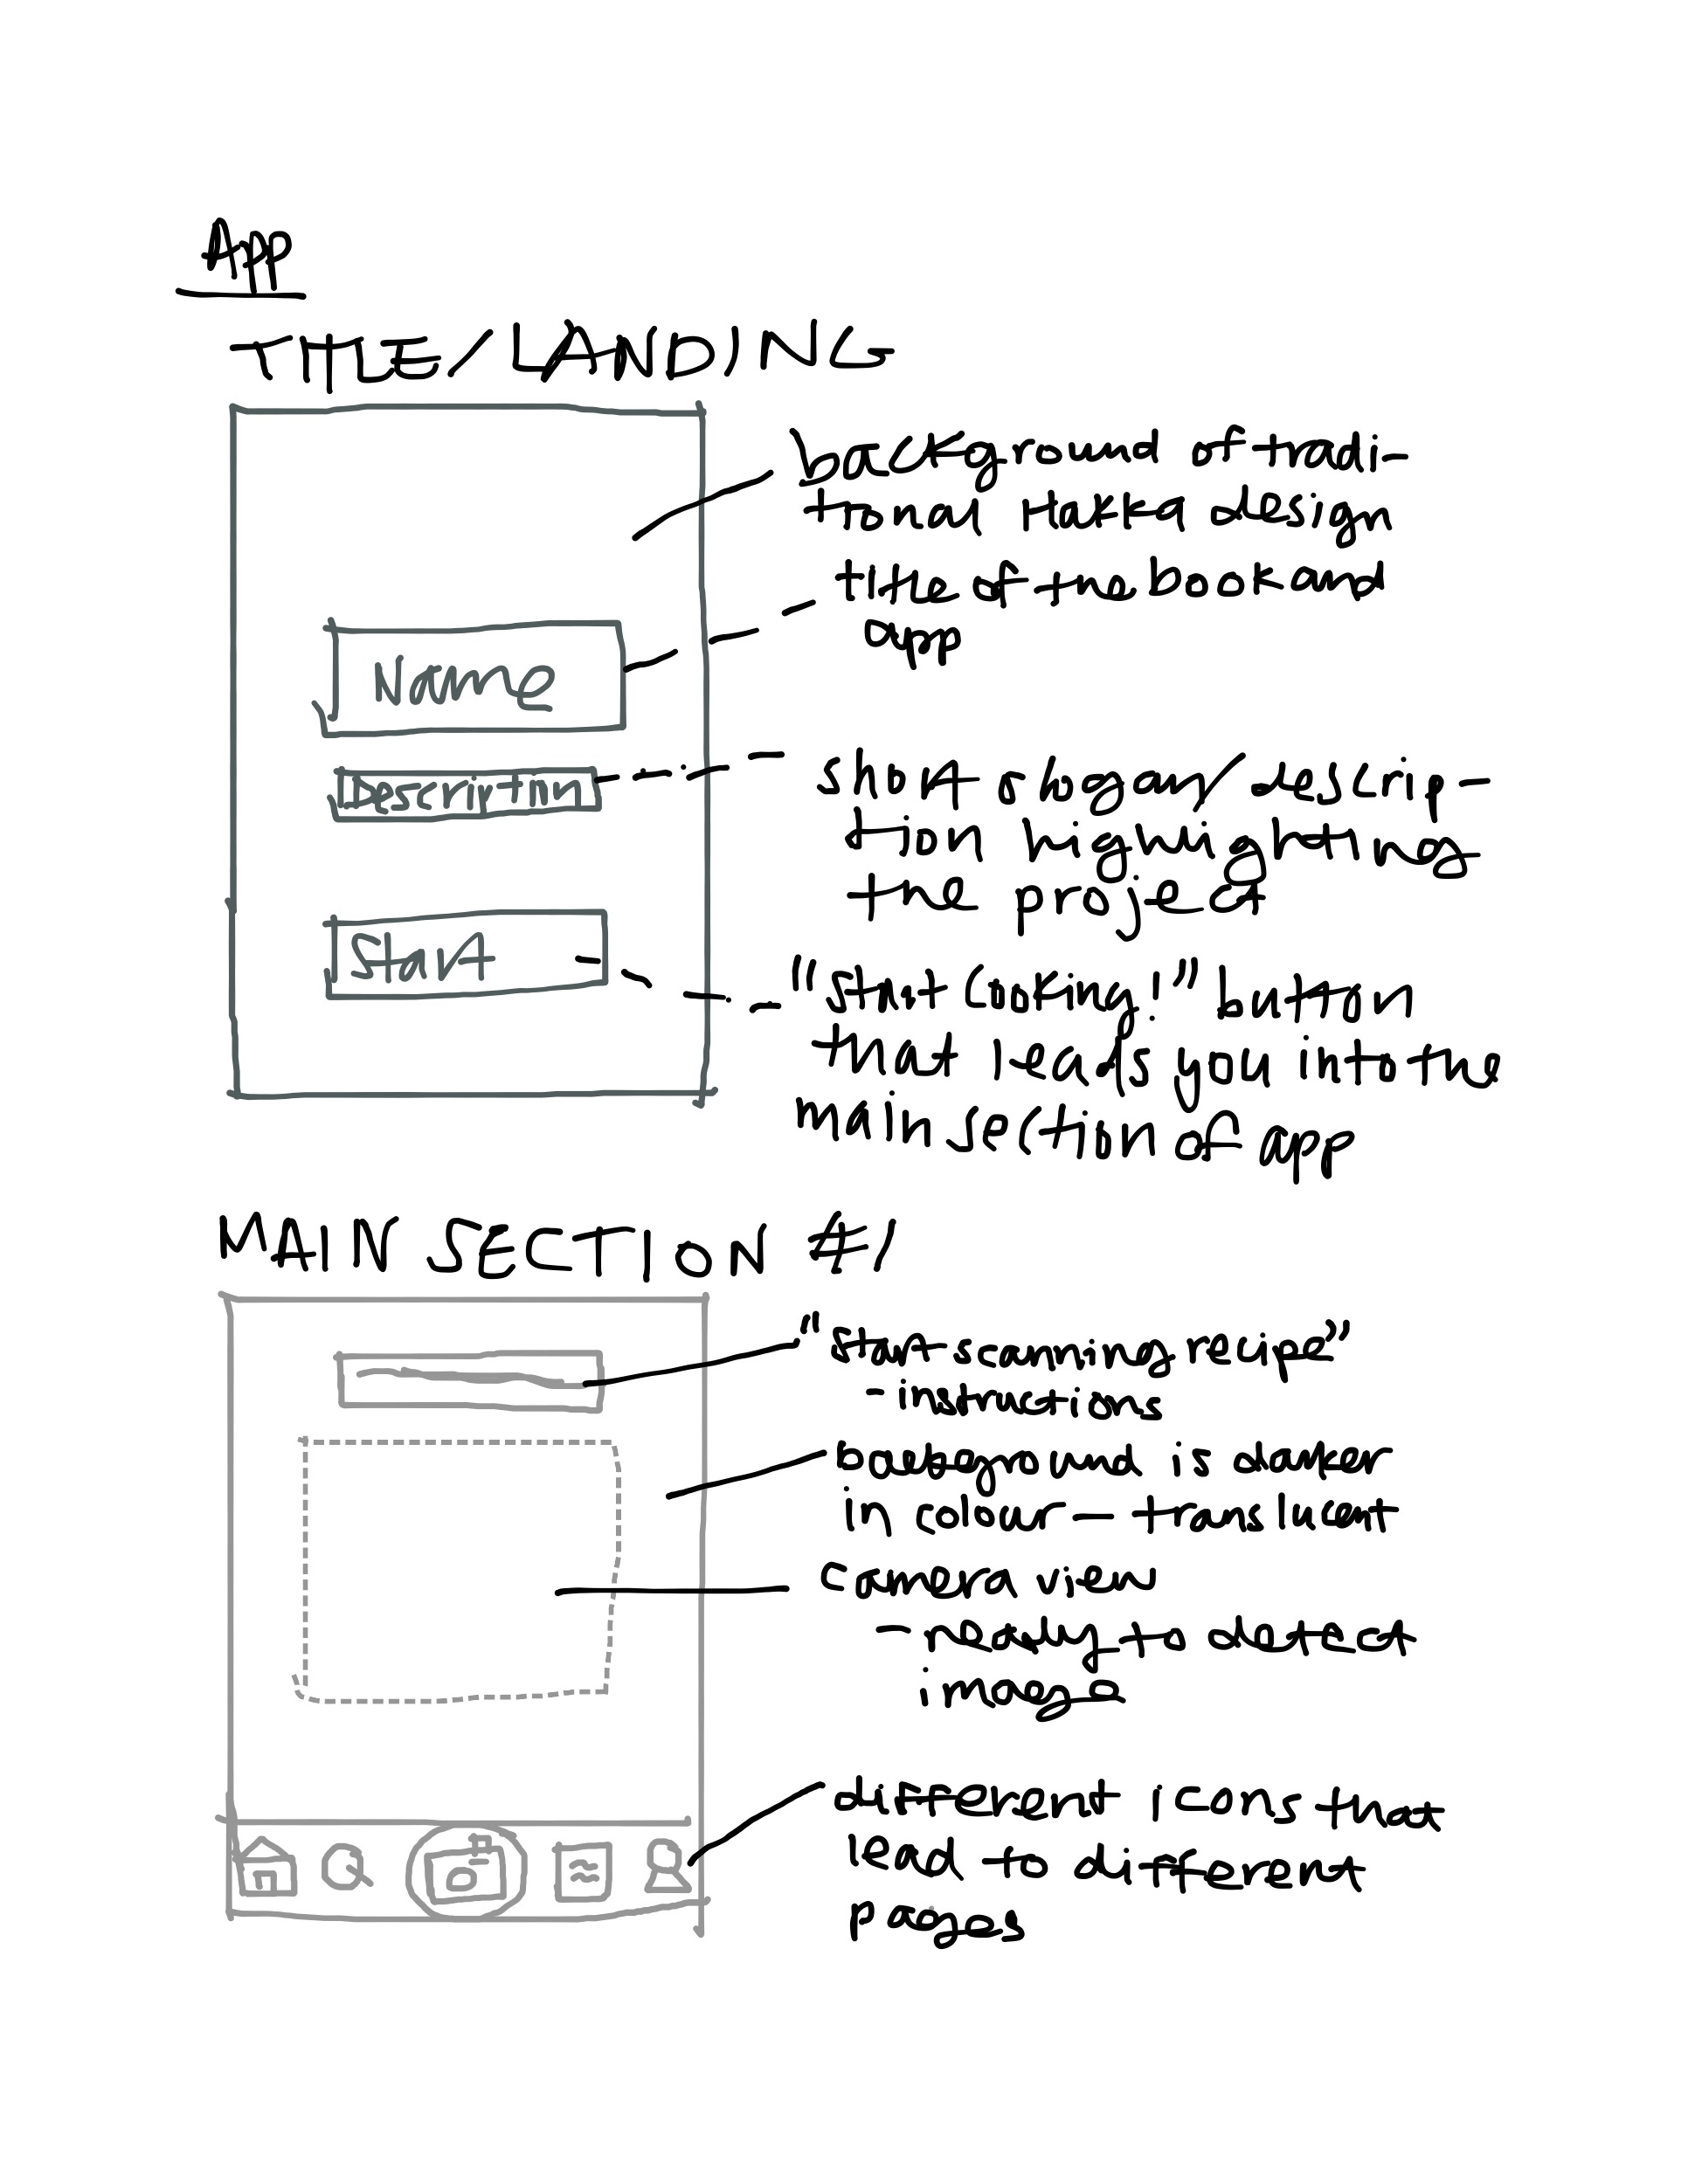 App
TITLE/LANDING
background of tradi-
tional Hakka design
title of the book and
app
Name
Description
short slogan/descrip-
tion highlighting
the project
Start
"Start Cooking!" button
that leads you into the
main section of app
MAIN SECTION #1
"Start scanning recipe"
- instructions
background is darker
in colour — translucent
camera view
- ready to detect
image
different icons that
lead to different
pages